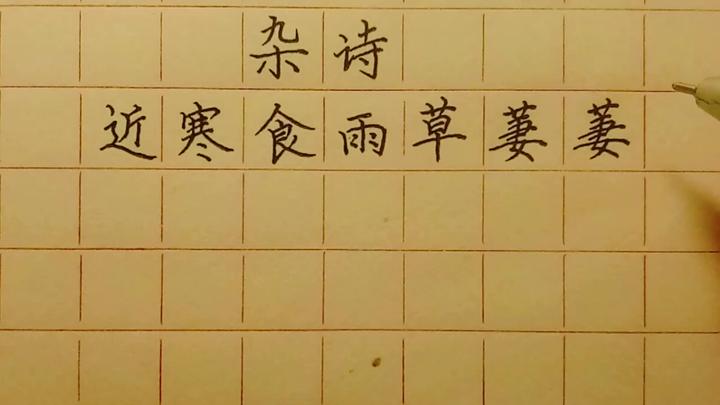 杂诗
近寒食雨草萋萋